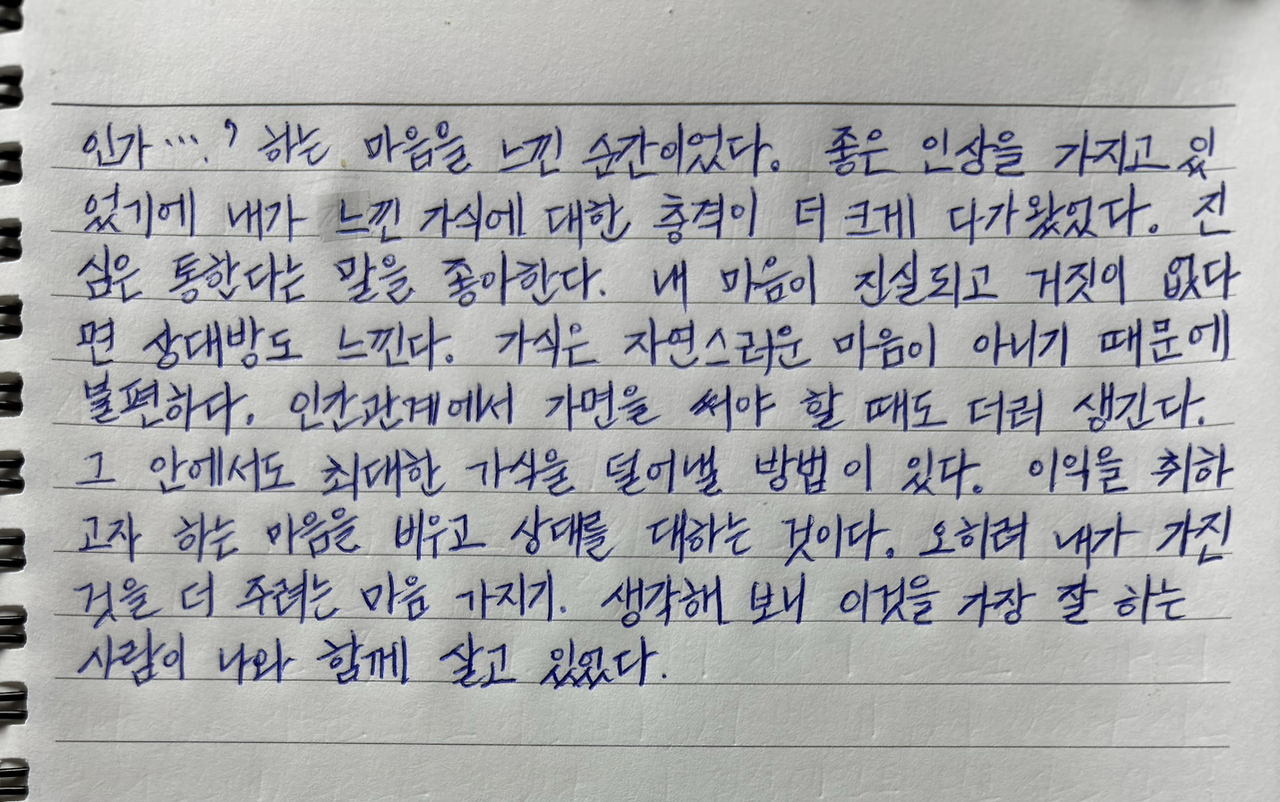 인가….’ 하는 마음을 느낀 순간이었다. 좋은 인상을 가지고 있
었기에 내가 느낀 가식에 대한 충격이 더 크게 다가왔었다. 진
심은 통한다는 말을 좋아한다. 내 마음이 진실되고 거짓이 없다
면 상대방도 느낀다. 가식은 자연스러운 마음이 아니기 때문에
불편하다. 인간관계에서 가면을 써야 할 때도 더러 생긴다.
그 안에서도 최대한 가식을 덜어낼 방법이 있다. 이익을 취하
고자 하는 마음을 비우고 상대를 대하는 것이다. 오히려 내가 가진
것을 더 주려는 마음 가지기. 생각해 보니 이것을 가장 잘 하는
사람이 나와 함께 살고 있었다.